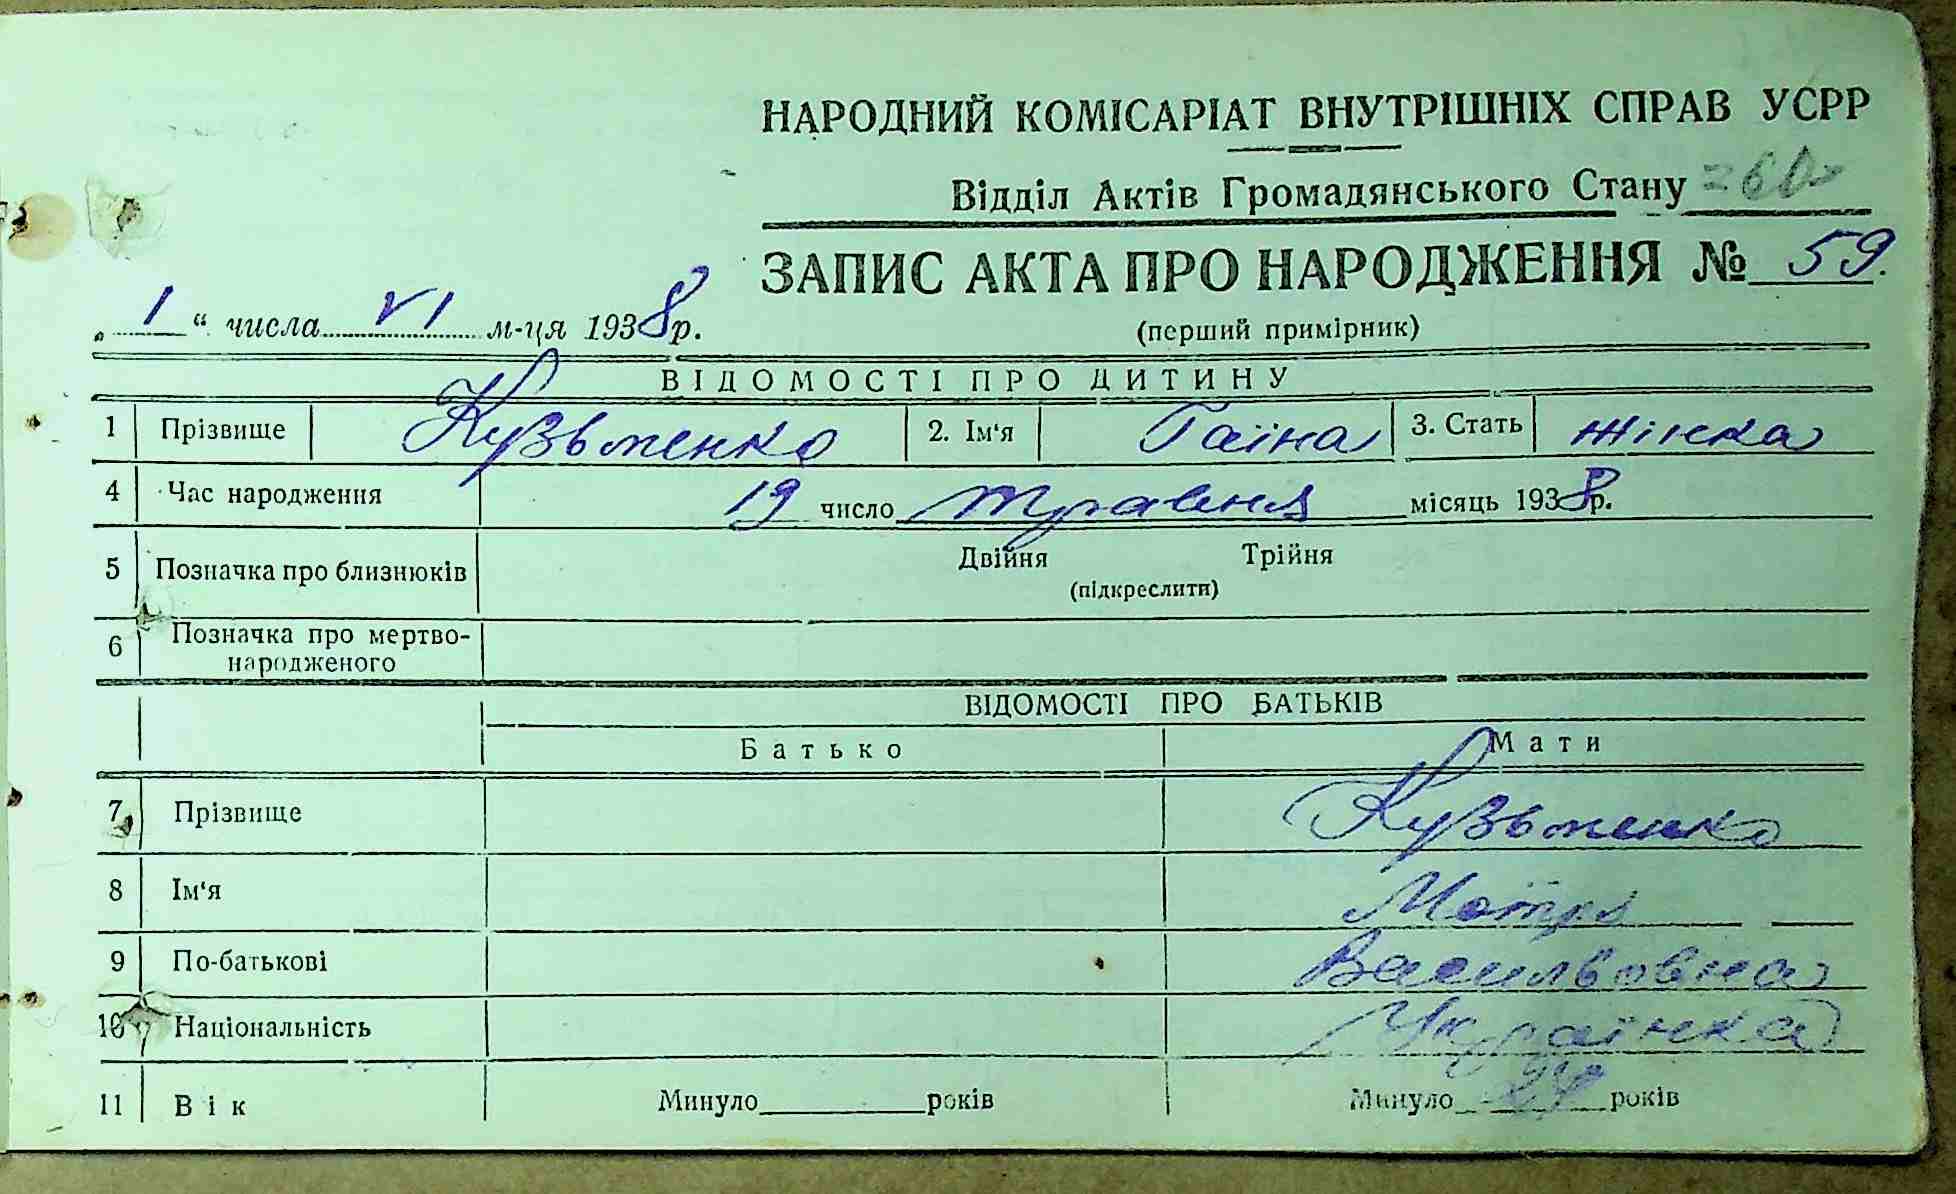 НАРОДНИЙ КОМІСАРІАТ ВНУТРІШНІХ СПРАВ УСРР
Відділ Актів Громадянського Стану
ЗАПИС АКТА ПРО НАРОДЖЕННЯ № 59.
„ 1 “ числа VI м-ця 1938 р.
(перший примірник)
ВІДОМОСТІ ПРО ДИТИНУ
1 Прізвище Кузьменко 2. Ім‘я Гаїна 3. Стать жінка
4 Час народження 19 число травня місяць 1938 р.
5 Позначка про близнюків Двійня Трійня
(підкреслити)
6 Позначка про мертво-
народженого
ВІДОМОСТІ ПРО БАТЬКІВ
Батько Мати
7 Прізвище Кузьменко
8 Ім‘я Мотря
9 По-батькові Васильовна
10 Національність Українка
11 Вік Минуло років Минуло років